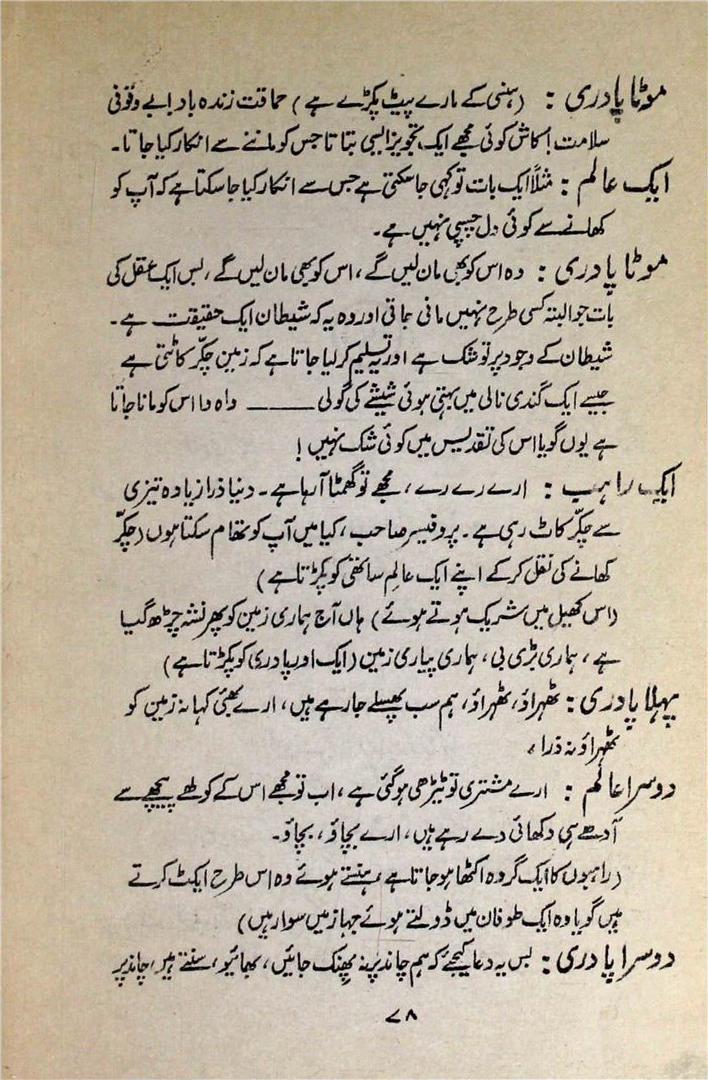 موٹا پادری : (ہنسی کے مارے پیٹ پکڑے ہے) حماقت زندہ باد! بے وقوفی
سلامت! کاش کوئی مجھے ایک تجویز ایسی بتاتا جس کو ماننے سے انکار کیا جاتا۔
ایک عالم : مثلاً ایک بات تو کہی جا سکتی ہے جس سے انکار کیا جا سکتا ہے کہ آپ کو
کھانے سے کوئی دل چسپی نہیں ہے۔
موٹا پادری : وہ اس کو بھی مان لیں گے، اس کو بھی مان لیں گے، بس ایک عقل کی
بات جو البتہ کسی طرح نہیں مانی جاتی اور وہ یہ کہ شیطان ایک حقیقت ہے۔
شیطان کے وجود پر تو شک ہے اور یہ تسلیم کر لیا جاتا ہے کہ زمین چکّر کاٹتی ہے
جیسے ایک گندی نالی میں بہتی ہوئی شیشے کی گولی ——— واہ وا اس کو مانا جاتا
ہے یوں گویا اس کی تقدیس میں کوئی شک نہیں!
ایک راہب : ارے رے رے، مجھے تو گھمٹا آ رہا ہے۔ دنیا ذرا زیادہ تیزی
سے چکّر کاٹ رہی ہے۔ پروفیسر صاحب، کیا میں آپ کو تھام سکتا ہوں (چکّر
کھانے کی نقل کر کے اپنے ایک عالم ساتھی کو پکڑتا ہے)
(اس کھیل میں شریک ہوتے ہوئے) ہاں آج ہماری زمین کو پھر نشہ چڑھ گیا
ہے، ہماری بڑی بی، ہماری پیاری زمین (ایک اور پادری کو پکڑتا ہے)
پہلا پادری : ٹھہراؤ، ٹھہراؤ، ہم سب پھسلے جا رہے ہیں، ارے بھئی کہا نہ زمین کو
ٹھہراؤ نہ ذرا،
دوسرا عالم : ارے مشتری تو ٹیڑھی ہو گئی ہے، اب تو مجھے اس کے کولھے پیچھے سے
آدھے ہی دکھائی دے رہے ہیں، ارے بچاؤ، بچاؤ۔
(راہبوں کا ایک گروہ اکٹھا ہو جاتا ہے، ہنستے ہوئے وہ اس طرح ایکٹ کرتے
ہیں گویا وہ ایک طوفان میں ڈولتے ہوئے جہاز میں سوار ہیں)
دوسرا پادری : بس یہ دعا کیجئے کہ ہم چاند پر نہ پھنک جائیں، بھائیو، سنتے ہیں، چاند پر
۷۸